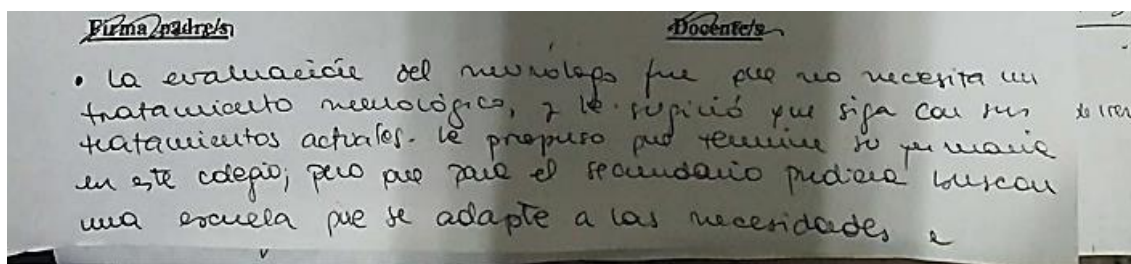 Firma padre/s Docente/s
• La evaluación del neurólogo fue que no necesita un
tratamiento neurológico, y le sugirió que siga con sus
tratamientos actuales. Le propuso que termine su primaria
en este colegio; pero que para el secundario pudiera buscar
una escuela que se adapte a las necesidades e